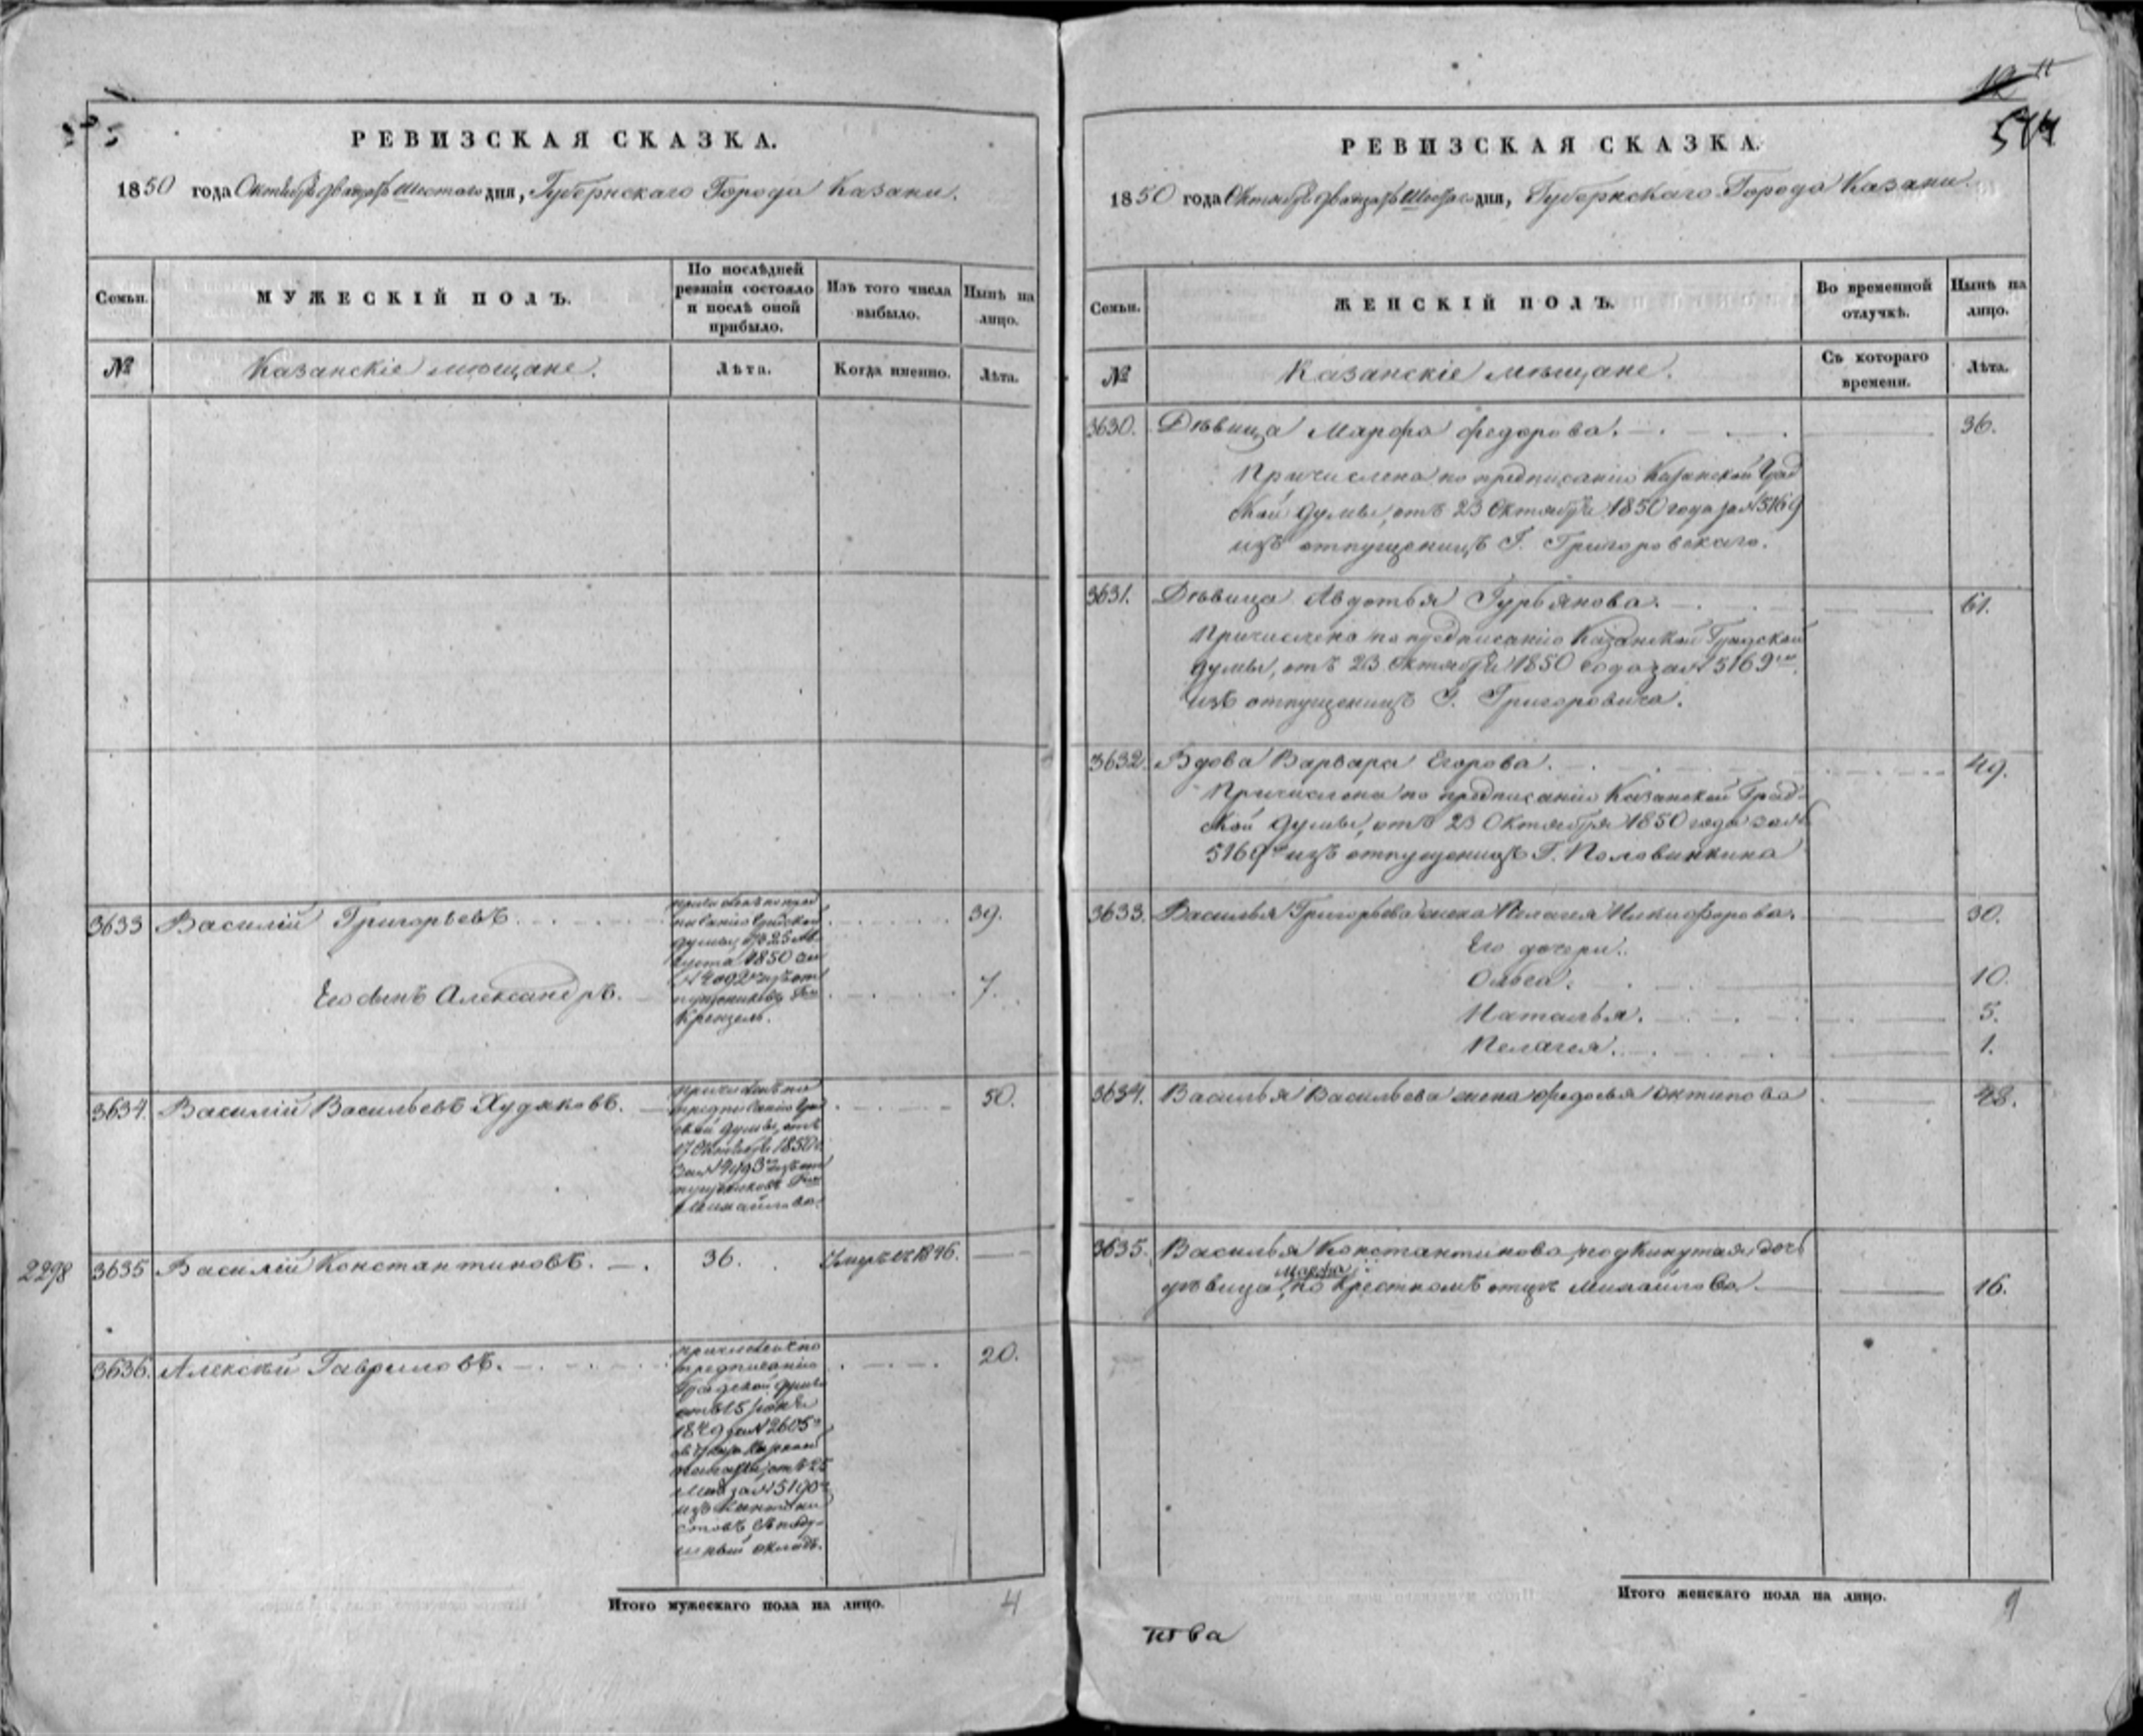 РЕВИЗСКАЯ СКАЗКА.
1850 года Октября двадцать Шестаго дня, Губернскаго Города Казани.
Семьи.
МУЖЕСКІЙ ПОЛЪ.
По послѣдней
ревизіи состояло
и послѣ оной
прибыло.
Изъ того числа
выбыло.
Нынѣ на
лицо.
№
Казанскіе мѣщане.
Лѣта.
Когда именно.
Лѣта.
3633 Василій Григорьевъ. 39.
причисленъ по пред
писанію Градской
Думы, отъ 25 Ав
густа 1850 за
№ 4092 изъ от
пущенниковъ Гжи
Крензель.
Его сынъ Александръ. 7.
3634. Василій Васильевъ Худяковъ. 50.
причисленъ по
предписанію Град
ской Думы, отъ
17 Октября 1850 г.
изъ от
пущенниковъ Гжи
Михайлова.
2298 3635 Василій Константиновъ. 36. Умеръ въ 1846.
3636. Алексѣй Гавриловъ. 20.
причисленъ по
предписанію
Градской Думы
отъ 15 Іюня
1849 за № 2605
Палаты, отъ 25
Мая за № 5190
изъ Кантони
стовъ въ поду-
шный окладъ.
Итого мужескаго пола на лицо. 4
12 11
574
РЕВИЗСКАЯ СКАЗКА.
1850 года Октября двадцать Шестаго дня, Губернскаго Города Казани.
Семьи.
ЖЕНСКІЙ ПОЛЪ.
Во временной
отлучкѣ.
Нынѣ на
лицо.
№
Казанскіе мѣщане.
Съ котораго
времени.
Лѣта.
3630. Дѣвица Марфа Федорова. 36.
Причислена по предписанію Казанской Град
ской Думы, отъ 23 Октября 1850 года за № 5169
изъ отпущенницъ Г. Григоровскаго.
3631. Дѣвица Авдотья Гурьянова. 61.
Причислена по предписанію Казанской Градской
Думы, отъ 23 Октября 1850 года за № 5169
изъ отпущенницъ Г. Григоровича.
3632. Вдова Варвара Егорова. 49.
Причислена по предписанію Казанской Град-
ской Думы, отъ 23 Октября 1850 года за №
5169 изъ отпущенницъ Г. Половинкина
3633. Василья Григорьева жена Пелагея Никифорова. 30.
Его дочери.
Ольга. 10.
Наталья. 5.
Пелагея. 1.
3634. Василья Васильева жена Федосья Антипова 48.
3635. Василья Константинова подкинутая дочь
дѣвица Марфа по крестномъ отцѣ Михайлова. 16.
Итого женскаго пола на лицо. 9